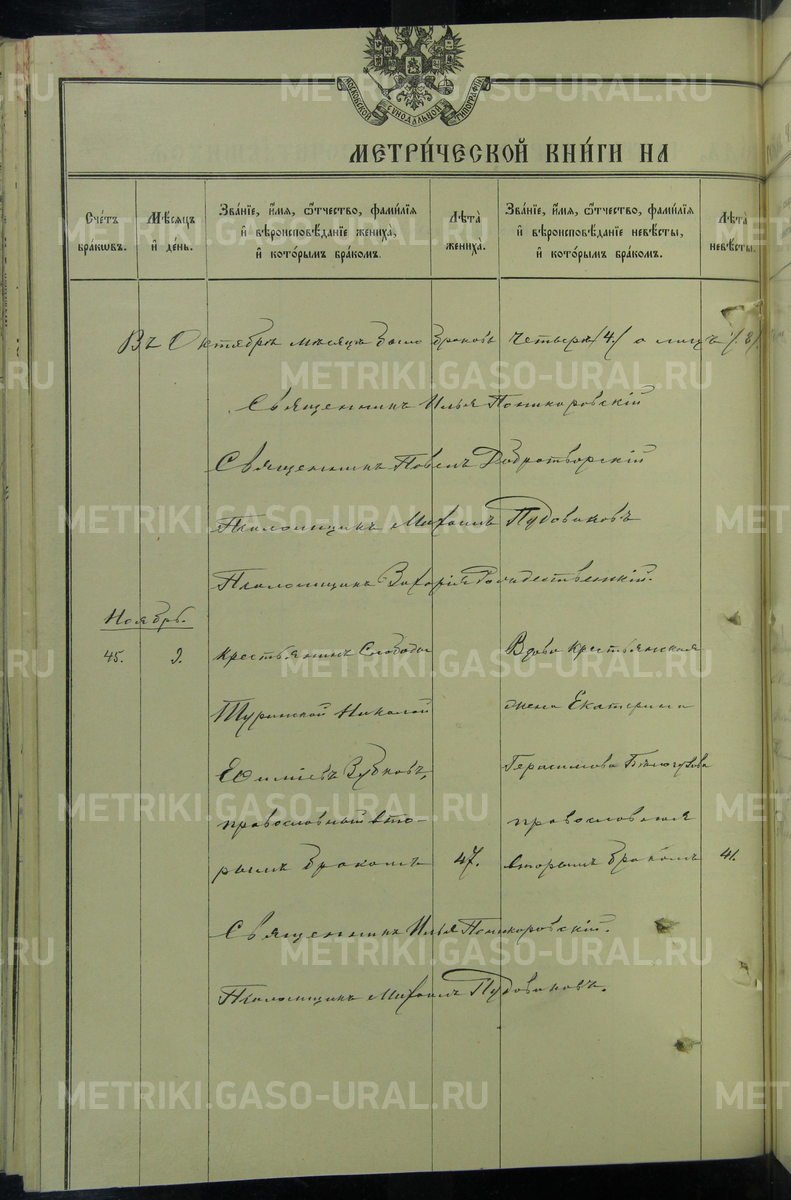 МОСКОВСКОЙ СѴНОДАЛЬНОЙ ТИПОГРАФІИ
МЕТРИ́ЧЕСКОЙ КНИ́ГИ НА
Сче́тъ бра́кѡвъ.
Мѣ́сяцъ и҆ де́нь.
Зва́нїе, и҆́мя, ѻ҆́тчество, фами́лїя и҆ вѣроисповѣ́данїе жениха̀, и҆ кото́рымъ бра́комъ.
Лѣта̀ жениха̀.
Зва́нїе, и҆́мя, ѻ҆́тчество, фами́лїя и҆ вѣроисповѣ́данїе невѣ́сты, и҆ кото́рымъ бра́комъ.
Лѣта̀ невѣ́сты.
Въ Октябрѣ мѣсяцѣ было браковъ четыре /4/ а лицъ /8/.
Священникъ Илья Поникаровскій
Священникъ Павелъ Добротворскій
Псаломщикъ Михаилъ Пудовиковъ
Псаломщикъ Захарія Рождественскій.
Ноябрь.
45.
9.
Крестьянинъ Слободы
Туринской Николай
Еѳиміевъ Зубковъ,
православный вто-
рымъ бракомъ
47.
Вдова крестьянская
жена Екатерина
Герасимова
православная
вторымъ бракомъ
41.
Священникъ Илья Поникаровскій.
Псаломщикъ Михаилъ Пудовиковъ.
METRIKI.GASO-URAL.RU